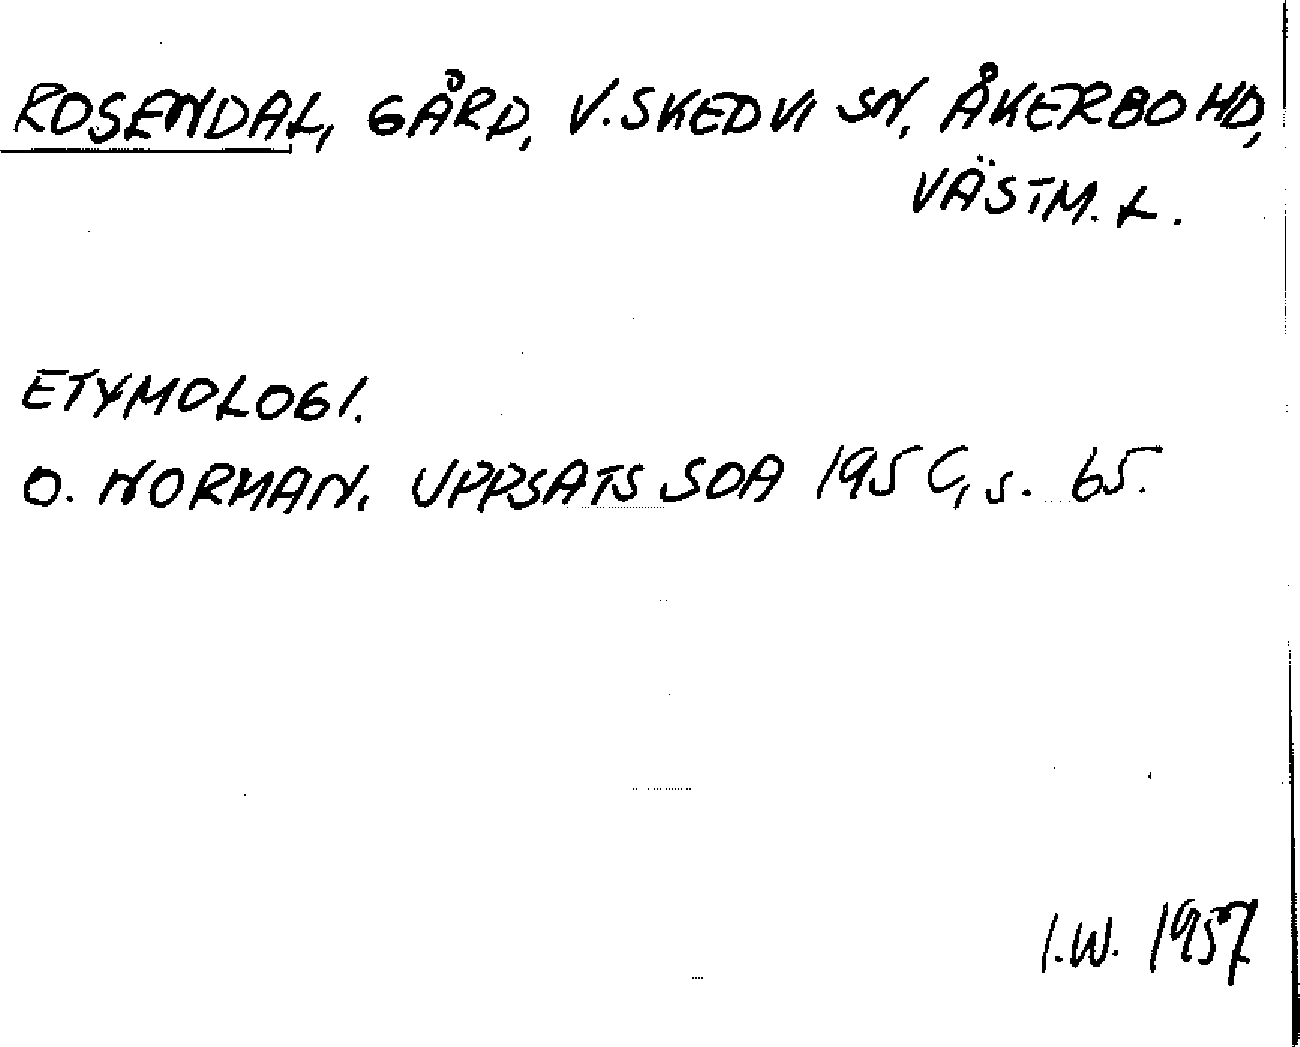 ROSENDAL, GÅRD, V. SKEDVI SN, ÅKERBO HD,
VÄSTM. L.
ETYMOLOGI.
O. NORMAN. UPPSATS SOA 195 C, s. 65.
I.W. 1957